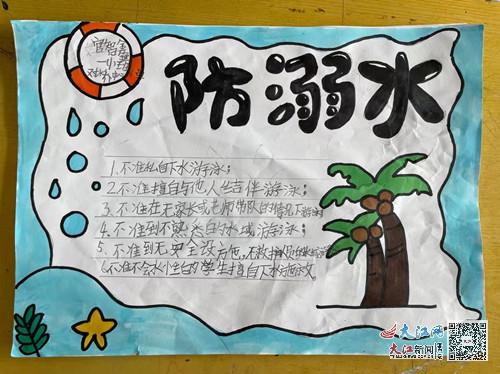 防溺水
1.不准私自下水游泳；
2.不准擅自与他人结伴游泳；
3.不准在无家长或老师带队的情况下游泳
4.不准到不熟悉的水域游泳；
5.不准到无安全设施、无救护员的水域游泳
6.不准不会水性的学生擅自下水施救
大江网
大江新闻